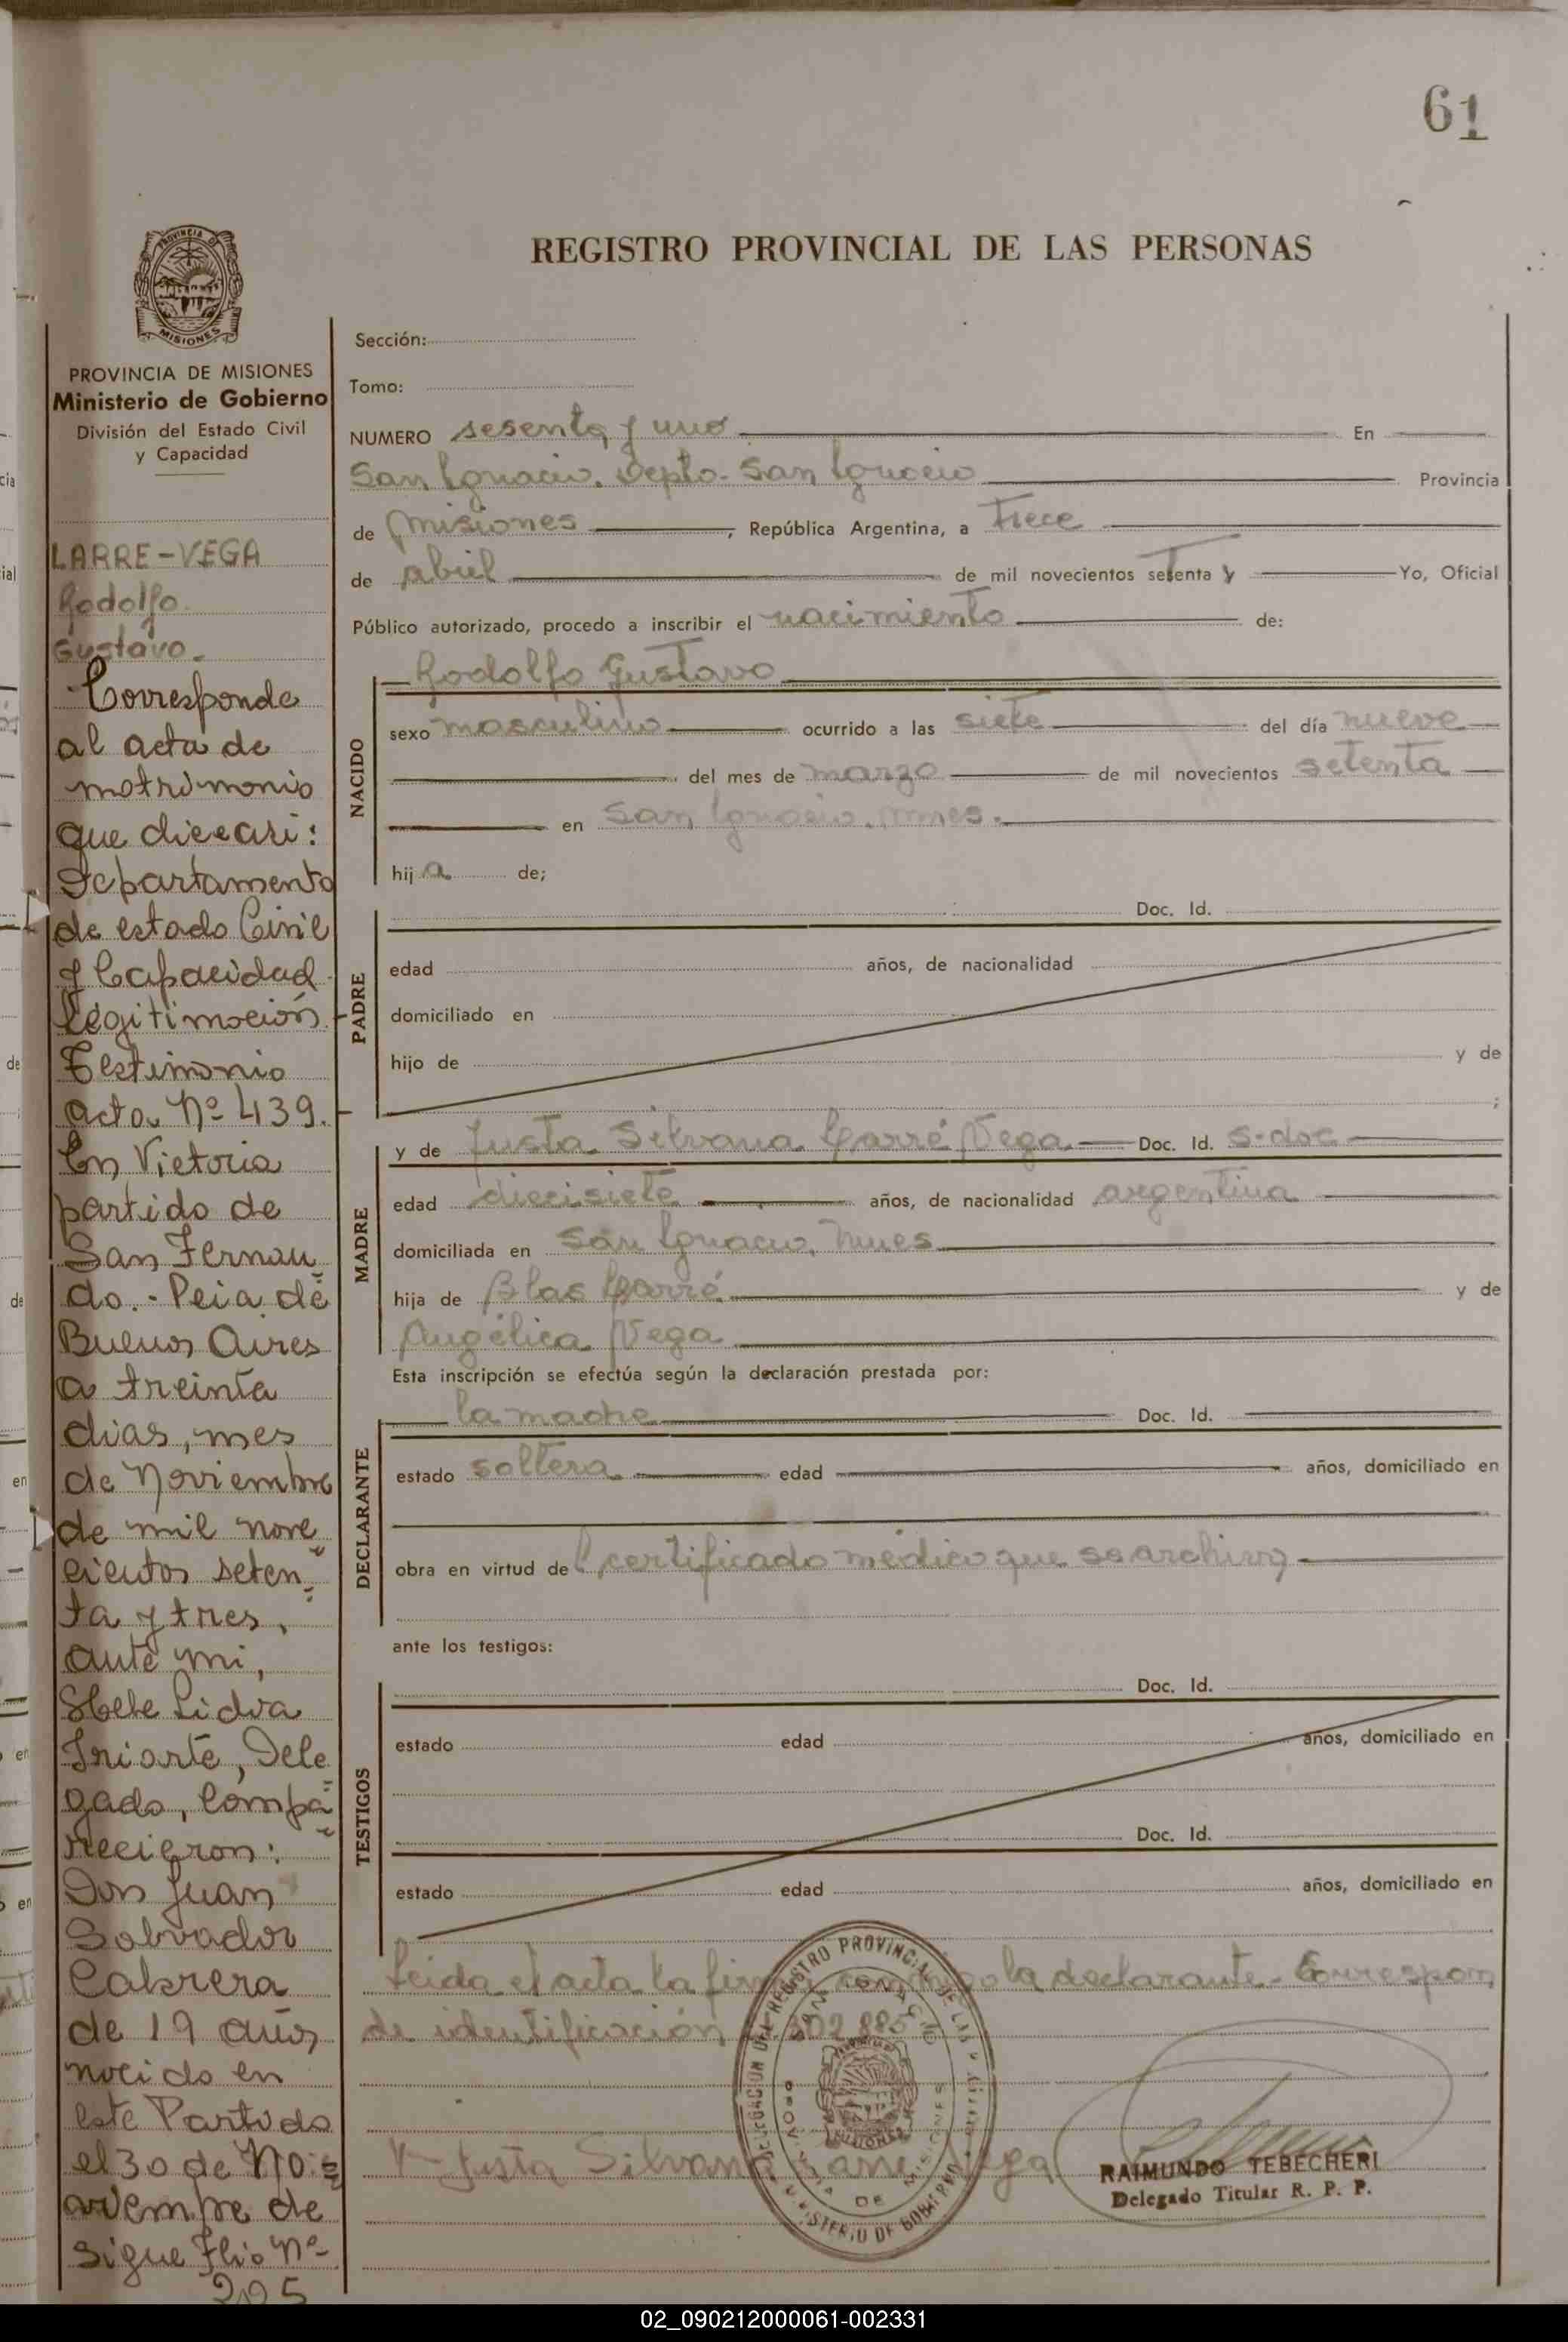 61
REGISTRO PROVINCIAL DE LAS PERSONAS
PROVINCIA DE
MISIONES
PROVINCIA DE MISIONES
Ministerio de Gobierno
División del Estado Civil
y Capacidad
LARRE-VEGA
Rodolfo
Gustavo.
Corresponde
al acta de
matrimonio
que dice asi:
Departamento
de estado Civil
y Capacidad
Legitimación
Testimonio
acta Nº 439.
En Victoria
partido de
San Fernan
do.- Pcia de
Buenos Aires
a treinta
dias, mes
de Noviembre
de mil nove
cientos seten
ta y tres,
ante mi,
Hebe Lidia
Iriarte, Dele
gado, Compa
recieron:
Don Juan
Salvador
Cabrera
de 19 años
nacido en
este Partido
el 30 de
de
Sigue Flio Nº
205
Sección:
Tomo:
NUMERO sesenta y uno En
San Ignacio. Depto. San Ignacio Provincia
de Misiones, República Argentina, a Trece
de abril de mil novecientos setenta y Yo, Oficial
Público autorizado, procedo a inscribir el nacimiento de:
Rodolfo Gustavo
NACIDO
sexo masculino ocurrido a las siete del día nueve
del mes de marzo de mil novecientos setenta
en San Ignacio, Mnes.
hija de;
PADRE
Doc. Id.
edad años, de nacionalidad
domiciliado en
hijo de y de
;
MADRE
y de Justa Silvana Larré Vega Doc. Id. s-doc
edad diecisiete años, de nacionalidad argentina
domiciliada en San Ignacio, Mnes
hija de Blas Larré y de
Angélica Vega
Esta inscripción se efectúa según la declaración prestada por:
DECLARANTE
la madre Doc. Id.
estado soltera edad años, domiciliado en
obra en virtud del certificado médico que se archiva
ante los testigos:
TESTIGOS
Doc. Id.
estado edad años, domiciliado en
Doc. Id.
estado edad años, domiciliado en
Leida el acta la firma la declarante. Correspon
de identificación
Justa Silvana Larre Vega
DELEGACION DEL REGISTRO PROVINCIAL DE LAS
MINISTERIO DE GOBIERNO
SAN IGNACIO
PROVINCIA DE MISIONES
MISIONES
RAIMUNDO TEBECHERI
Delegado Titular R. P. P.
02_090212000061-002331